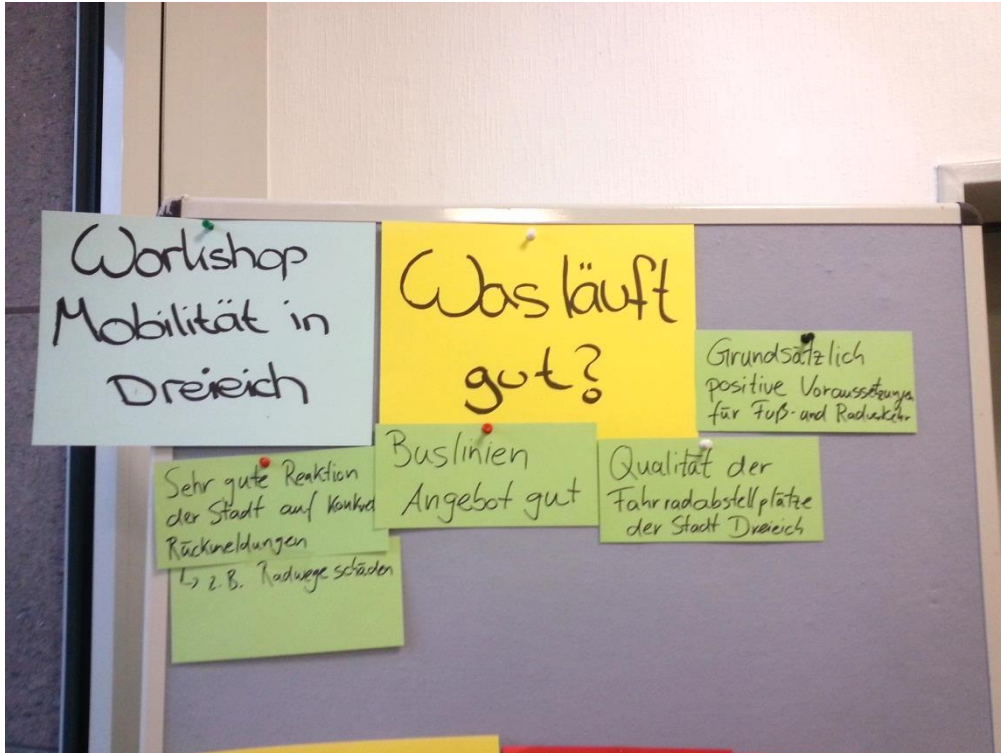 Workshop
Mobilität in
Dreieich
Was läuft
gut?
Grundsätzlich
positive Voraussetzungen
für Fuß- und Radverkehr
Sehr gute Reaktion
der Stadt auf
Rückmeldungen
↳ z.B. Radwegeschäden
Buslinien
Angebot gut
Qualität der
Fahrradabstellplätze
der Stadt Dreieich